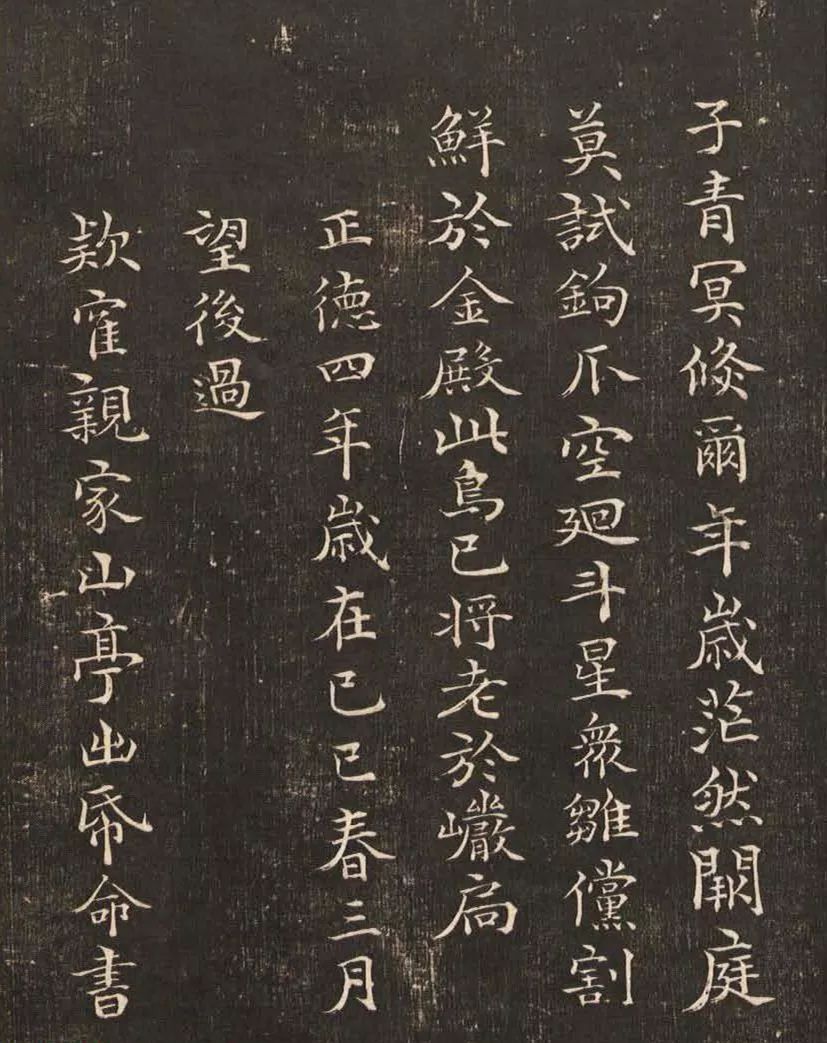 子青冥倐爾年歲茫然闕庭
莫試鉤爪空廻斗星衆雛儻割
鮮於金殿此鳥已將老於巗扃
正德四年歲在己巳春三月
望後過
欵寉親家山亭出帋命書